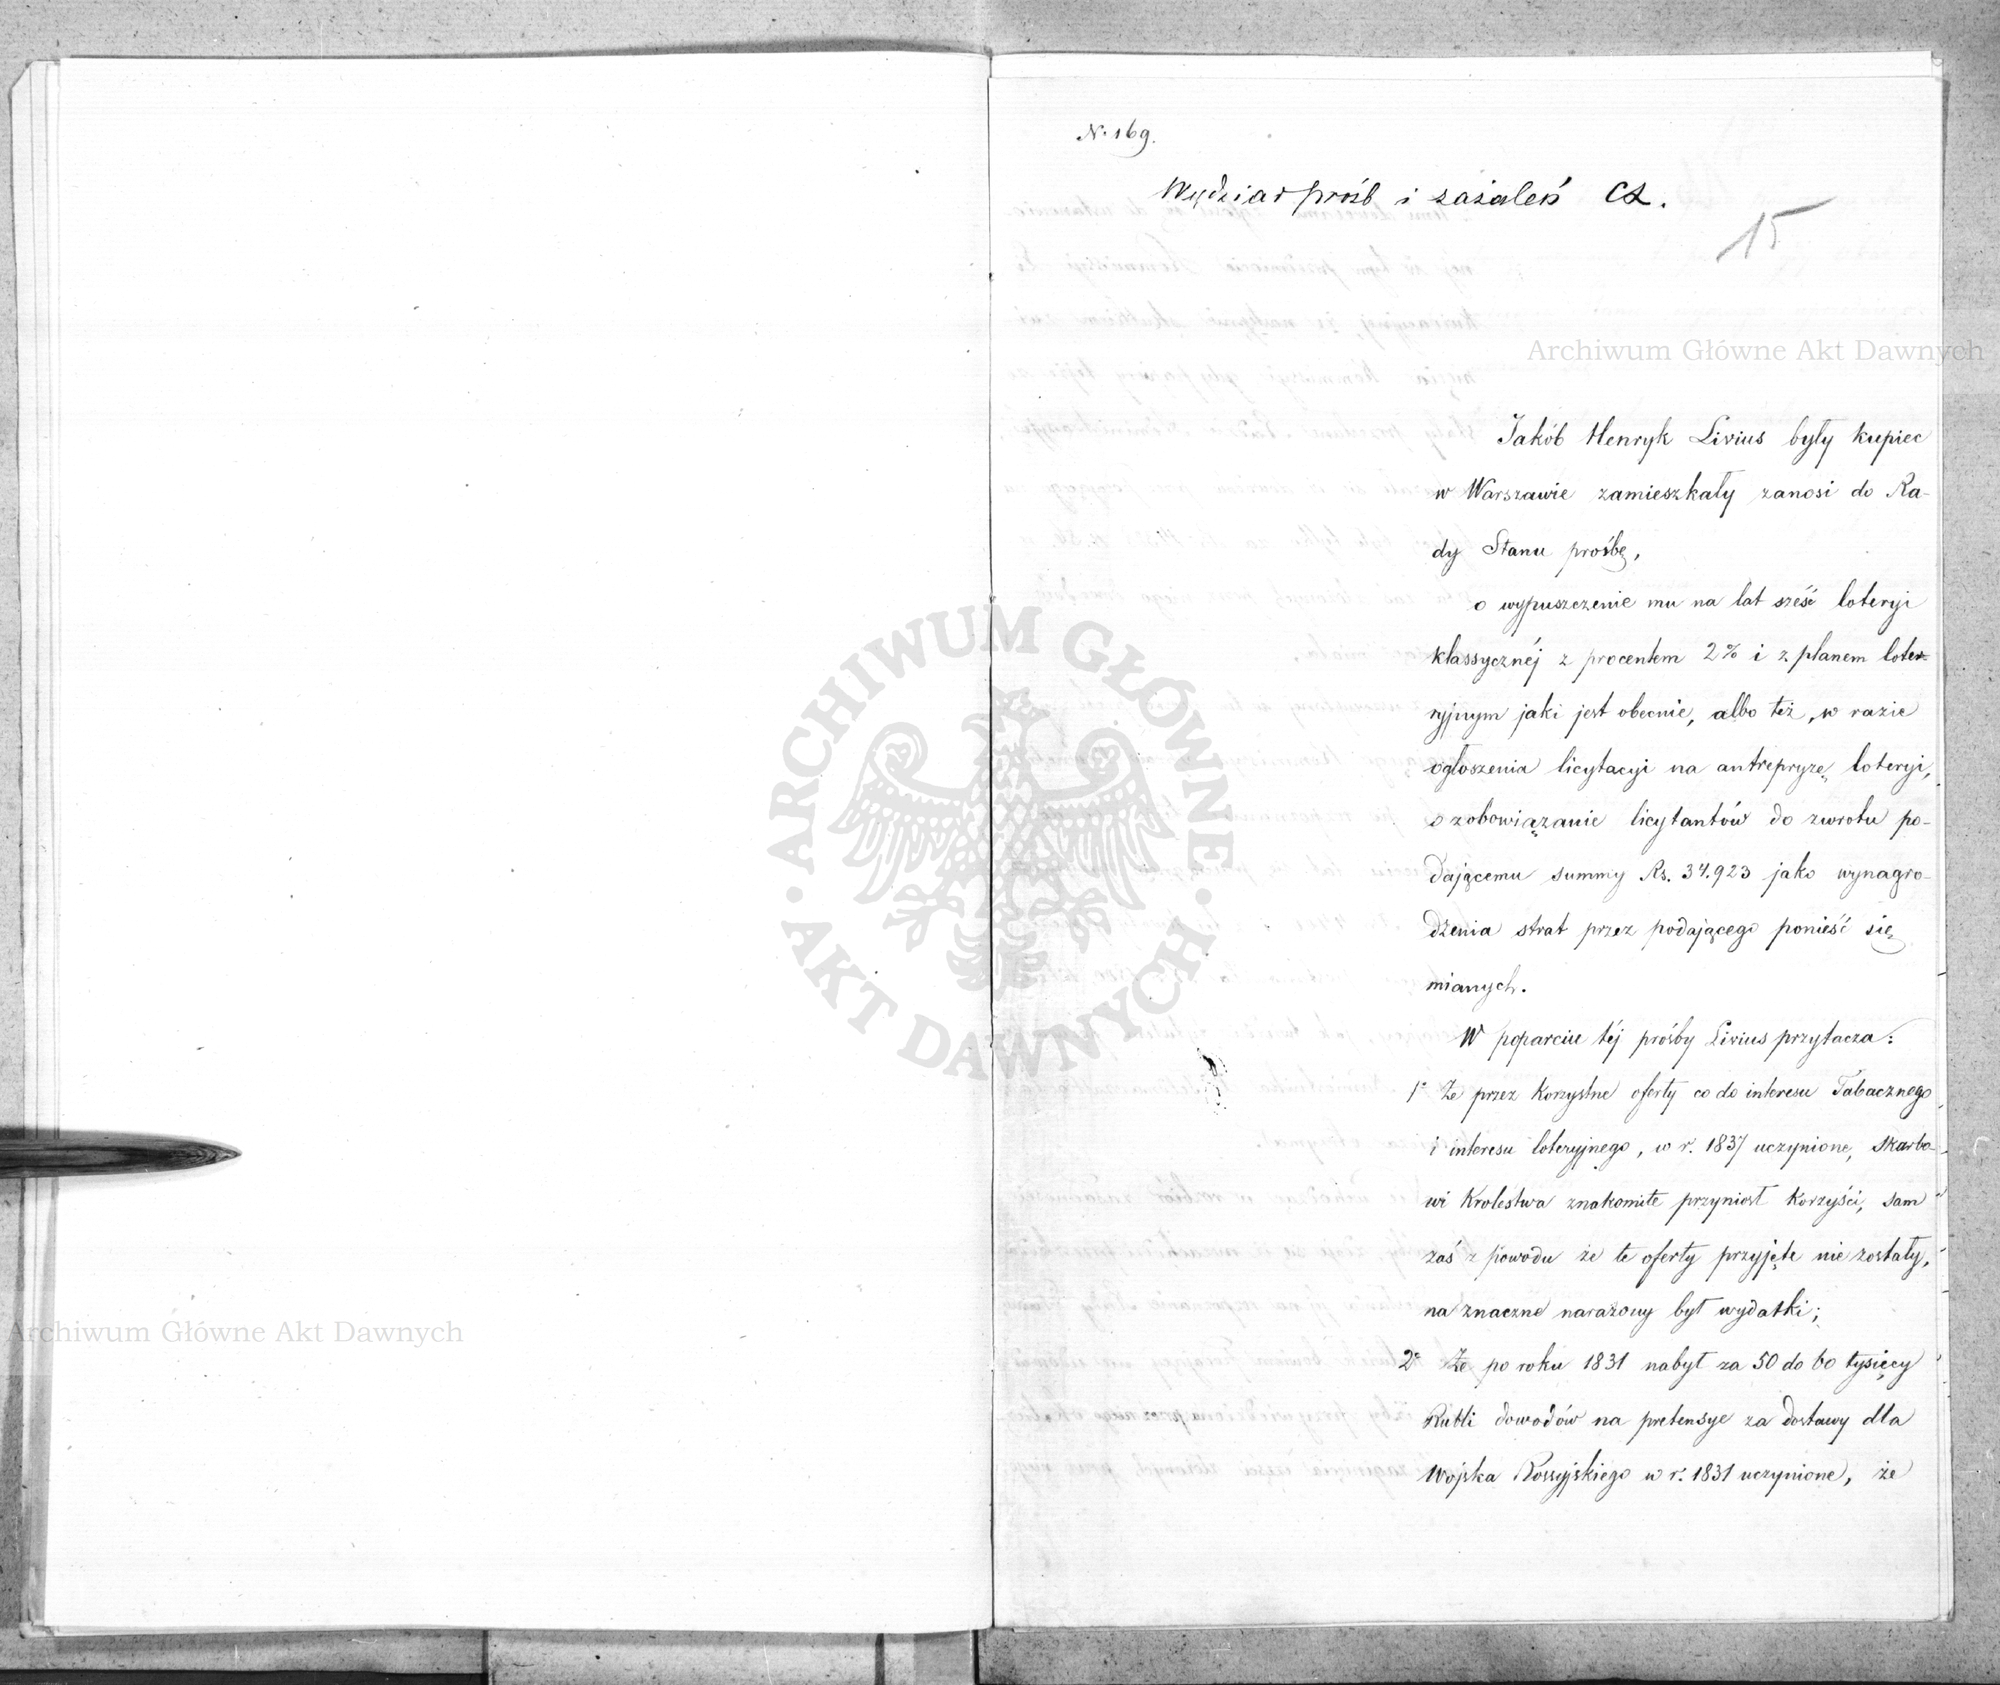 N. 169.
Wydział próśb i zażaleń
15
Archiwum Główne Akt Dawnych
Jakób Henryk Livius były kupiec
w Warszawie zamieszkały zanosi do Ra-
dy Stanu prośbę,
o wypuszczenie mu na lat sześć loteryi
klassycznéj z procentem 2% i z planem lote-
ryjnym jaki jest obecnie, albo też, w razie
ogłoszenia licytacyi na antrepryzę loteryi,
o zobowiązanie licytantów do zwrotu po-
dającemu summy Rs. 34.923 jako wynagro-
dzenia strat przez podającego ponieść się
mianych.
W poparciu téj prośby Livius przytacza:
1° Że przez korzystne oferty co do interesu Tabacznego
i interesu loteryjnego, w r. 1837 uczynione, skarbo-
wi Krolestwa znakomite przyniosł korzyści, sam
zaś z powodu że te oferty przyjęte nie zostały,
na znaczne narażony był wydatki;
2° Że po roku 1831 nabył za 50 do 60 tysięcy
Rubli dowodów na pretensye za dostawy dla
Wojska Rossyjskiego w r. 1831 uczynione, że
ARCHIWUM GŁÓWNE AKT DAWNYCH
Archiwum Główne Akt Dawnych